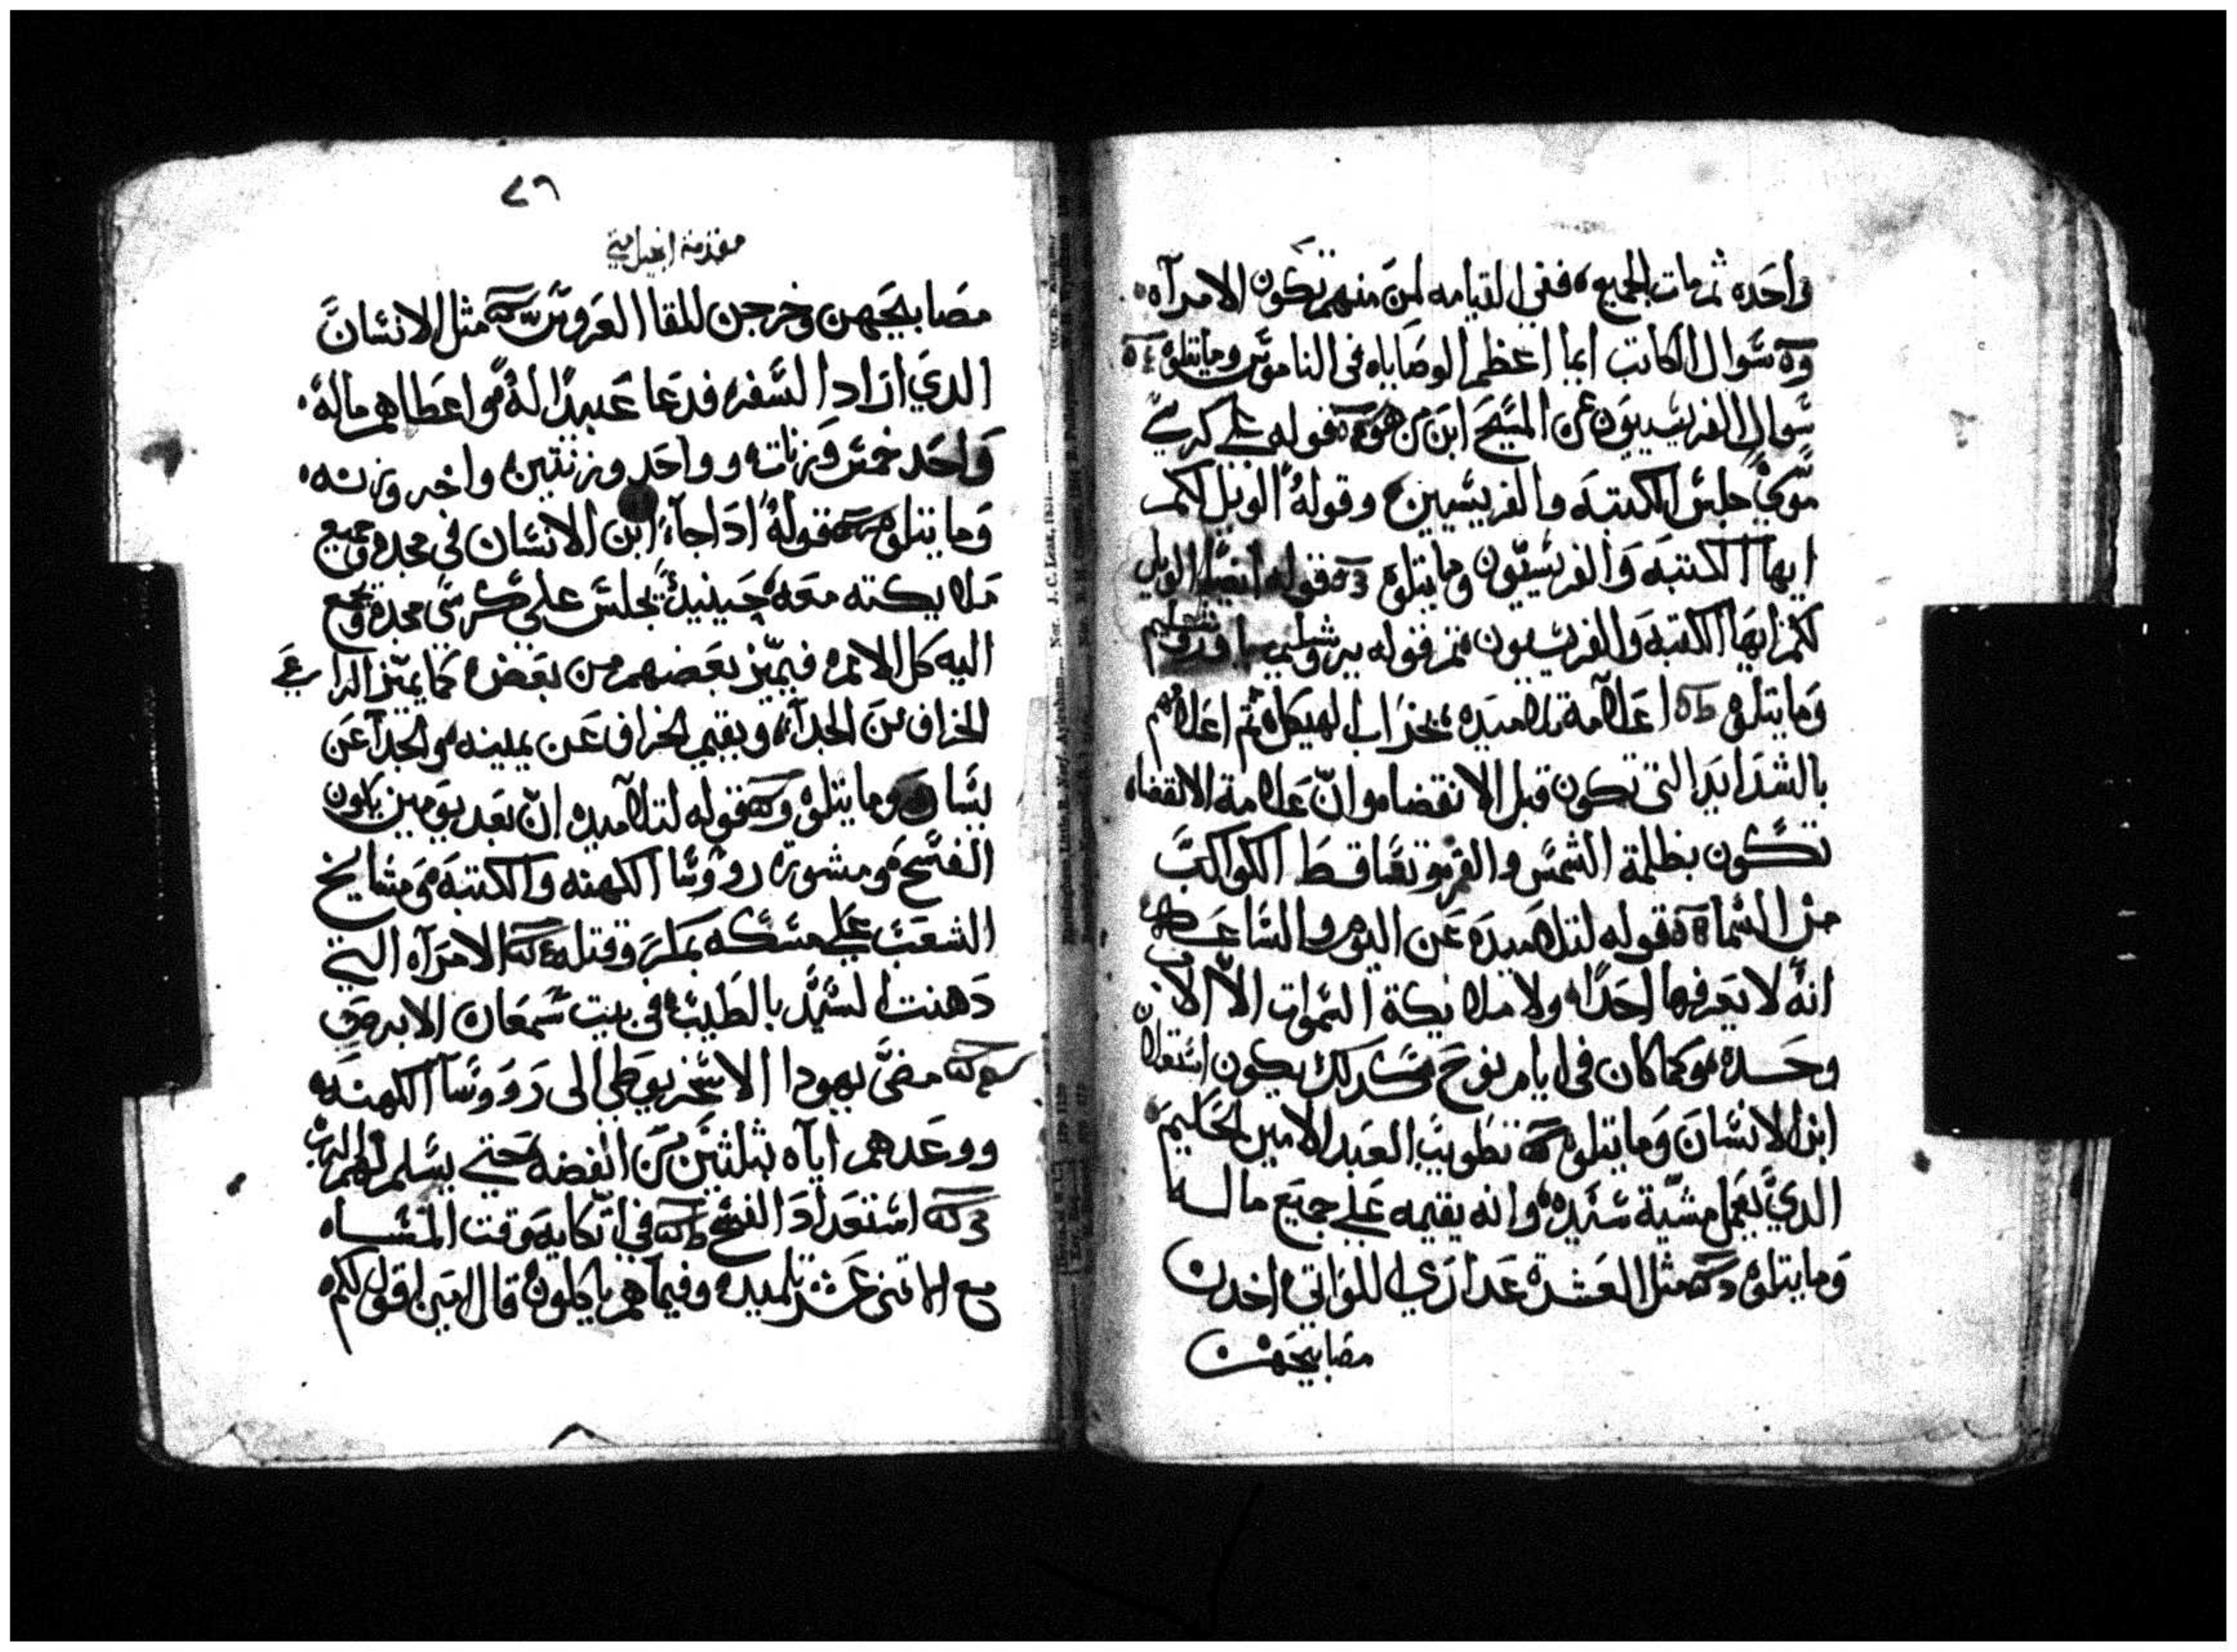 واحده ثم مات الجميع ففي القيامه لمن منهم تكون الامرآه
سوال الكاتب ايما اعظم الوصاياه في الناموس وما يتلوه
سوال الفريسيون عن المسيح ابن من هو قوله علي كرسي
موسي جلس الكتبه والفريسيين وقوله الويل لكم
ايها الكتبه والفريسيون وما يتلوه قوله ايضا الويل
لكم ايها الكتبه والفريسيون ثم قوله يروشليم
وما يتلوه اعلامه تلاميده بخراب الهيكل ثم اعلامهم
بالشدايد التي تكون قبل الانقضا وان علامة الانقضاء
تكون بظلمة الشمس والقمر وتساقط الكواكب
من السماء قوله لتلاميده عن اليوم والساعه
انه لا يعرفها احدا ولا ملايكة السموات الا الاب
وحده وكما كان في ايام نوح كدلك يكون استعلان
ابن الانسان وما يتلوه تطويب العبد الامين الحكيم
الدي يعمل مشية سيده وانه يقيمه علي جميع ماله
وما يتلوه مثل العشره عداري اللواتي اخدن
مصابيحهن
٧٦
مقدمة انجيل متي
مصابيحهن وخرجن للقا العروس مثل الانسان
الدي اراد السفر فدعا عبيدا له واعطاهم ماله
واحد خمس وزنات وواحد وزنتين واخر وزنه
وما يتلوه قوله ادا جآء ابن الانسان في مجده وجميع
ملايكته معه حينيد يجلس علي كرسي مجده وتجمع
اليه كل الامم فيميز بعضهم من بعض كما يميز الراعي
الخراف من الجدآء ويقيم الخراف عن يمينه والجدآ عن
يساره وما يتلوه قوله لتلاميده ان بعد يومين يكون
الفسح ومشورة رووسا الكهنه والكتبه ومشايخ
الشعب علي مسكه بمكر وقتله الامرآه التي
دهنت السيد بالطيب في بيت سمعان الابرص
مضي يهودا الاسخريوطي الي رووسآ الكهنه
ووعدهم اياه بثلثين من الفضه حتي يسلم لهم الرب
استعداد الفسح في اتكايه وقت المساء
مع الاتني عشر تلميده وفيما هم ياكلون قال امين اقول لكم